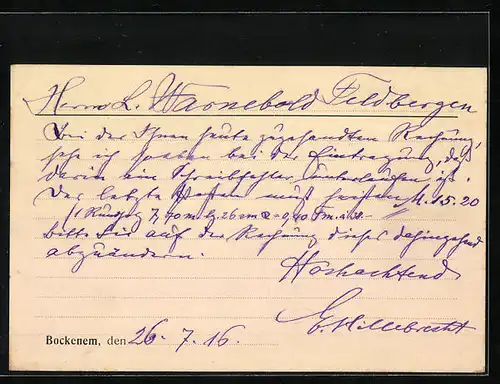 Herrn L. Warnebold Feldbergen
Bei der Ihnen heute zugesandten Rechnung,
sehe ich soeben bei der Eintragung, daß
darin ein Schreibfehler unterlaufen ist.
Der letzte Posten muß heißen M. 15.20
bitte Sie auf der Rechnung dieses dahingehend
abzuändern.
Hochachtend
E. Hillebrecht
Bockenem, den 26. 7. 16.